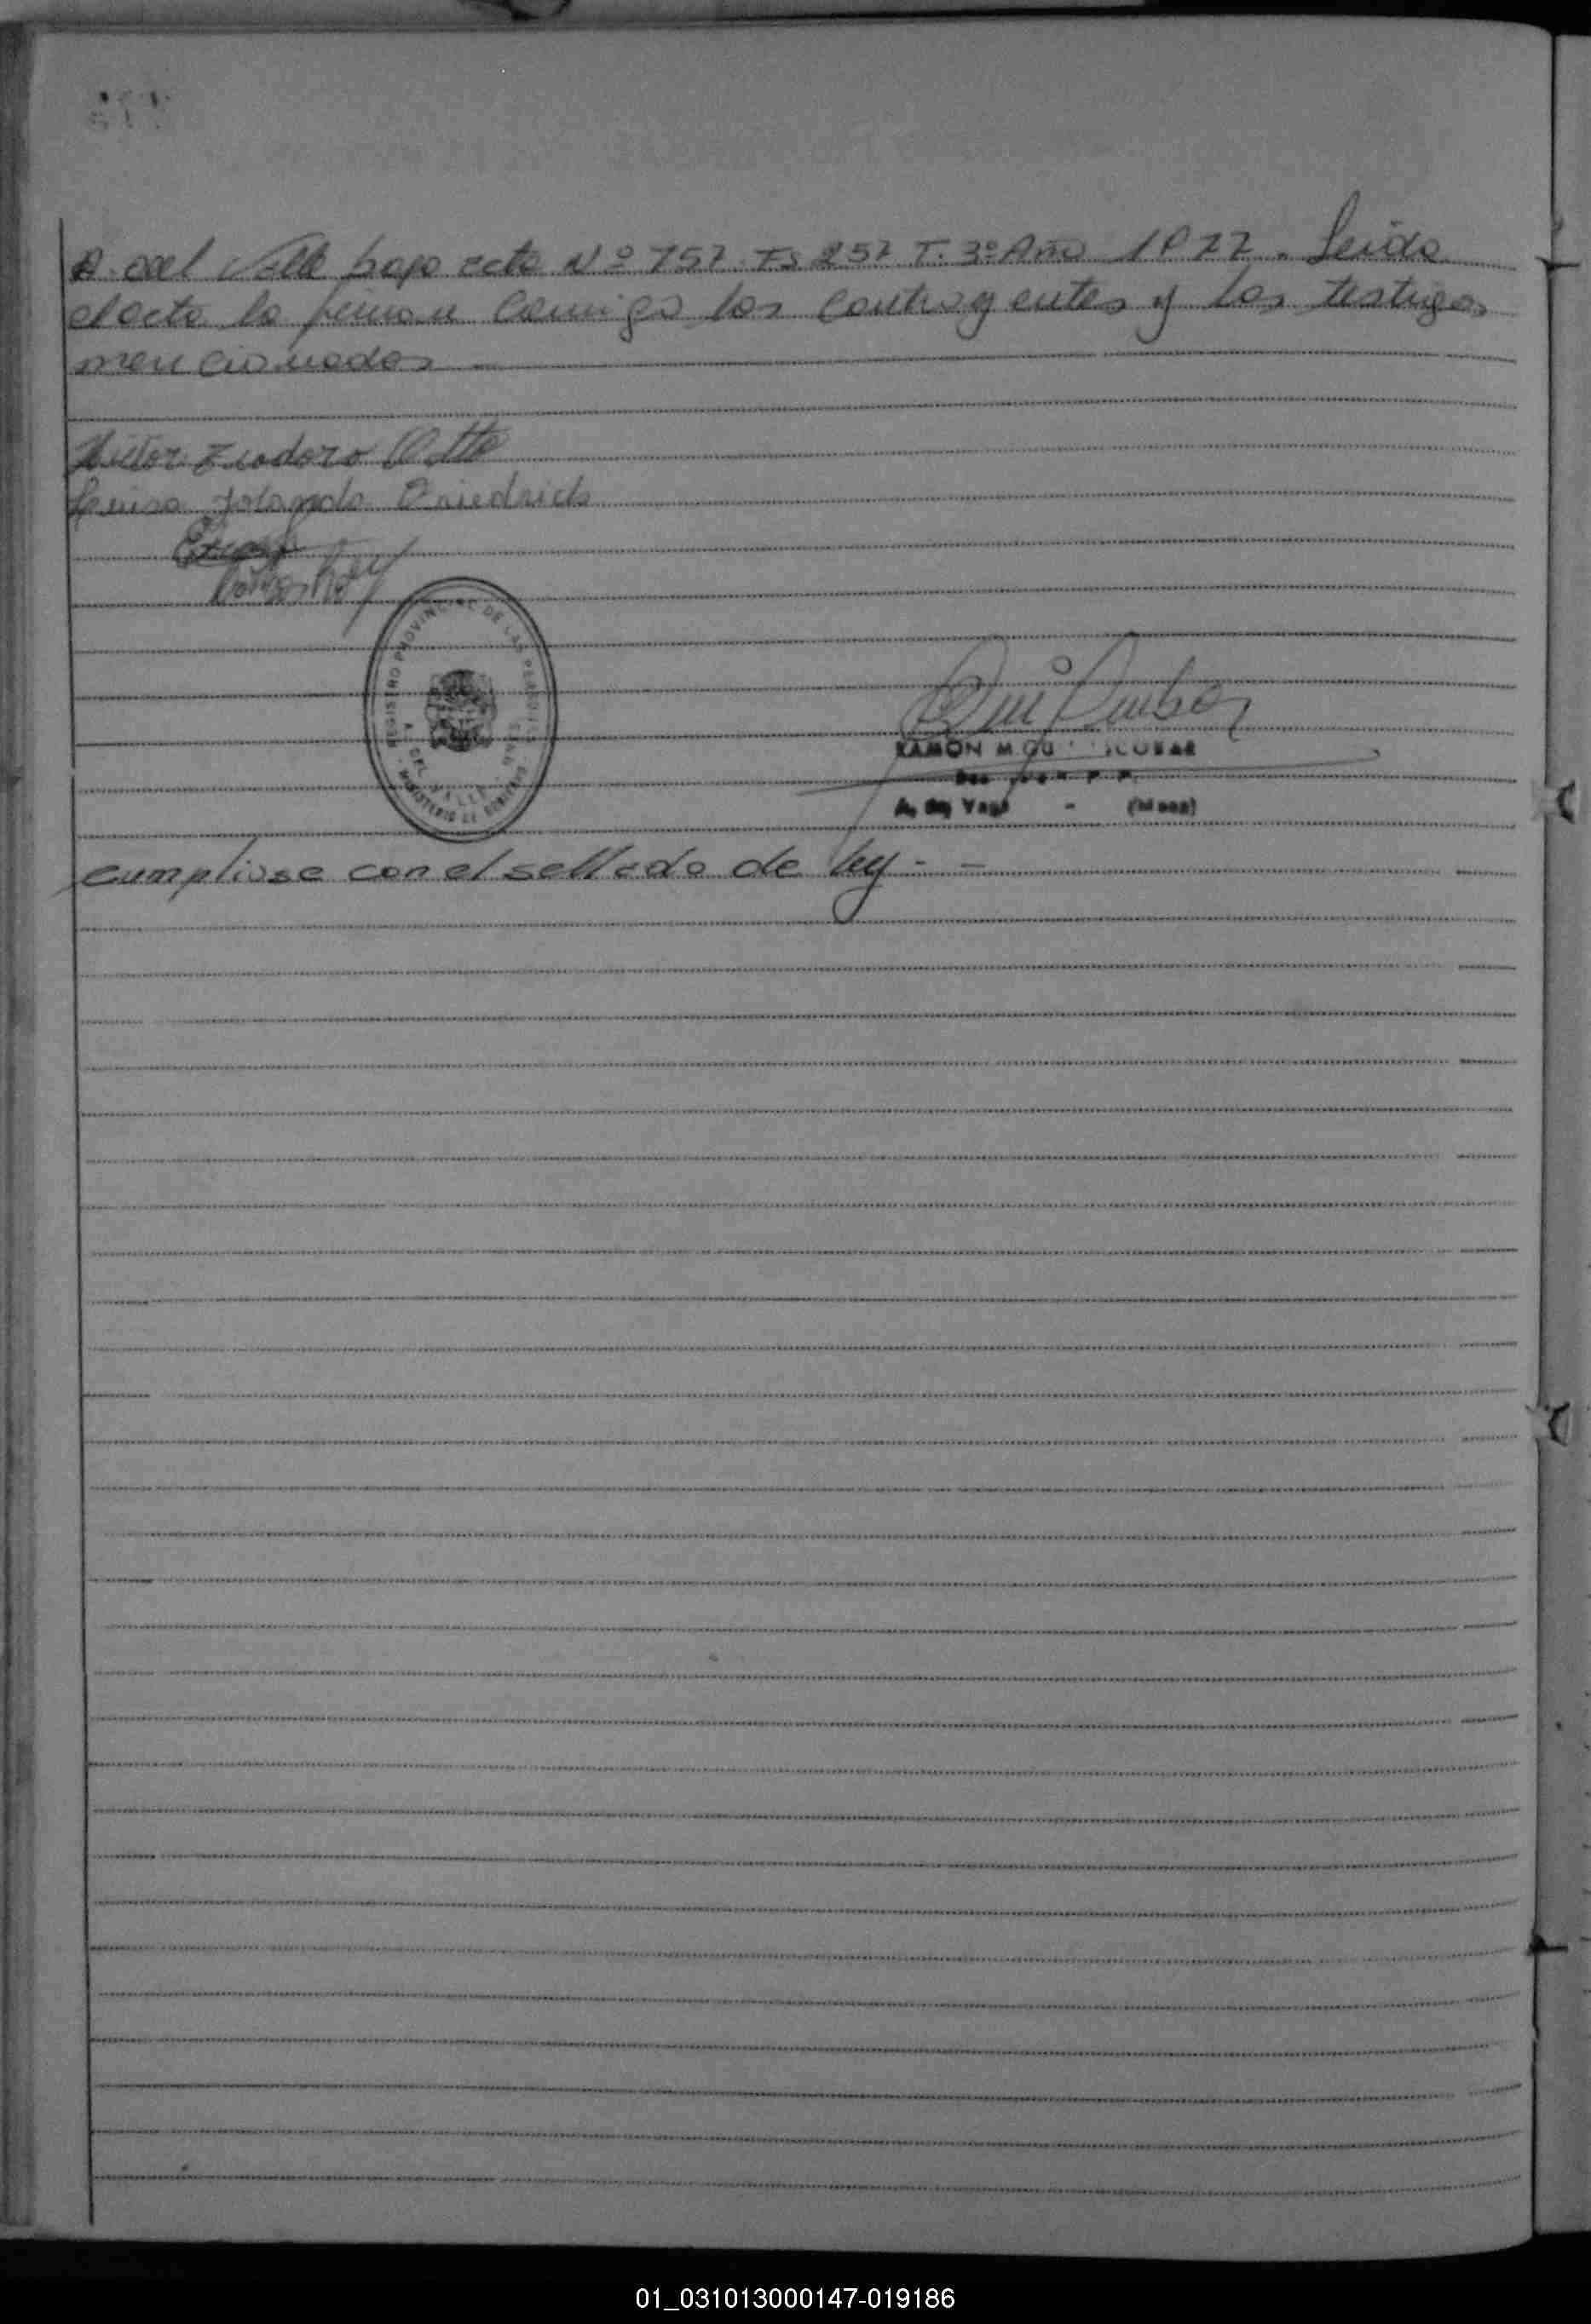 A. del Valle bajo acta Nº 757 Fs 257 T. 3º Año 1977. Leida
el acta la firman conmigo los contrayentes y los testigos
mencionados
Victor Teodoro Otto
Luisa Jolanda Friedrich
REGISTRO PROVINCIAL DE LAS PERSONAS
A. DEL VALLE
MINISTERIO DE GOBIERNO
RAMON M. ESCOBAR
A. del Valle - (Mnes)
cumpliose con el sellado de ley. -
01_031013000147-019186